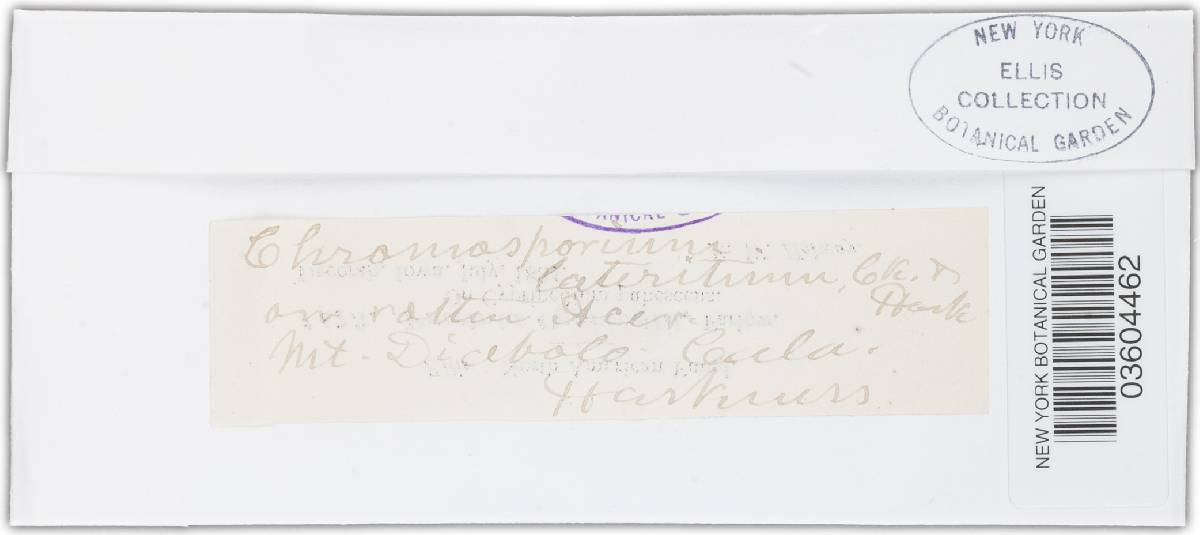 NEW YORK
ELLIS
COLLECTION
BOTANICAL GARDEN
Chromosporium
lateritium, Ck. &
Hark
on rotten Acer
Mt. Diabolo Cala.
Harkness.
NEW YORK BOTANICAL GARDEN
03604462